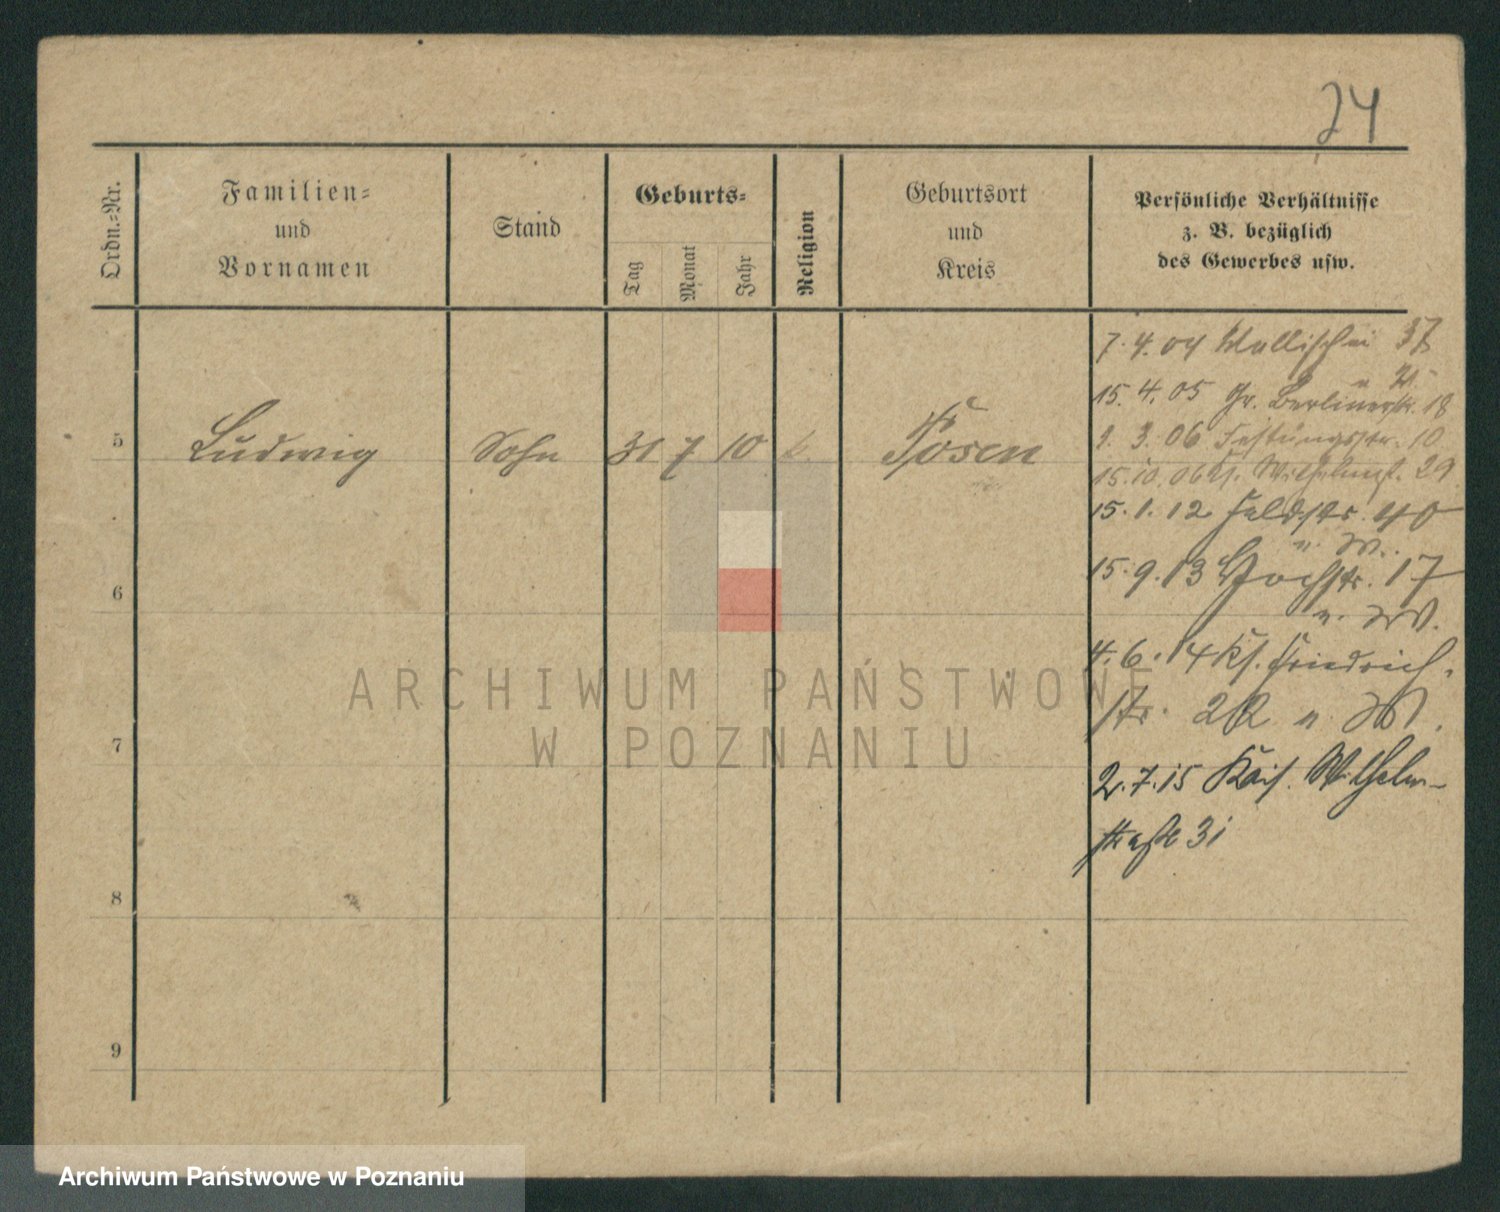 74
Ordn.-Nr.
Familien-
und
Vornamen
Stand
Geburts-
Tag
Monat
Jahr
Religion
Geburtsort
und
Kreis
Persönliche Verhältnisse
z. B. bezüglich
des Gewerbes usw.
7. 4. 04 Wallischei 37
15. 4. 05 Gr. Berlinerstr. 18
5 Ludwig Sohn 31 7 10 k. Posen
3. 06 Festungsstr. 10
15. 10. 06 Wilhelmspl. 29
15. 1. 12 Feldstr. 40
u. W.
15. 9. 13 Hochstr. 17
u. W.
6
4. 6. 14 Ks. Friedrich-
str. u. W.
7
2. 7. 15 Kais. Wilhelm-
straße 31
8
9
ARCHIWUM PAŃSTWOWE
W POZNANIU
Archiwum Państwowe w Poznaniu